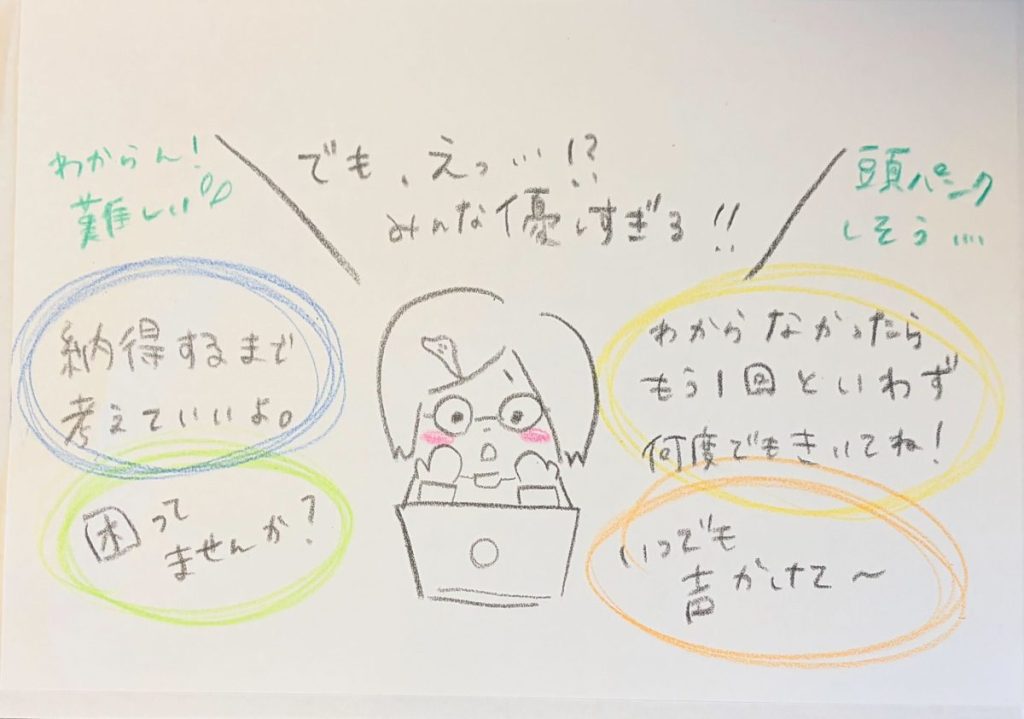 わからん!
難しい
でも、えっ…!?
みんな優しすぎる!!
頭パンク
しそう…
納得するまで
考えていいよ。
わからなかったら
もう1回といわず
何度でもきいてね!
困って
ませんか?
いつでも
声かけて〜